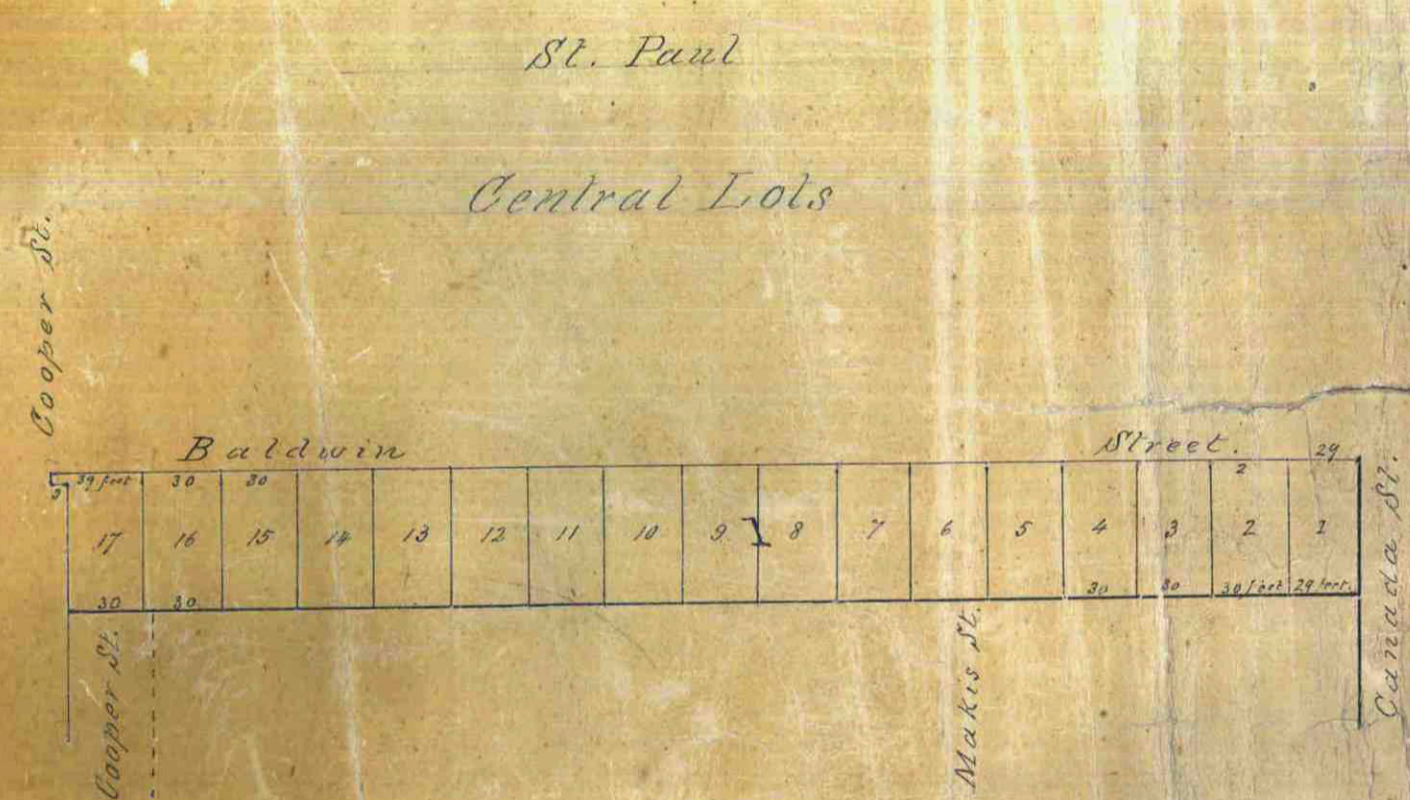 St. Paul
Central Lots
Cooper St.
Baldwin Street.
29
9 39 feet 30 30 2
17 16 15 14 13 12 11 10 9 8 7 6 5 4 3 2 1
30 30 30 30 30 feet 29 feet.
Cooper St.
Makis St.
Canada St.